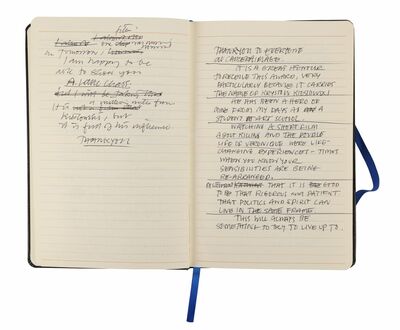 in tomorrow,
I am happy to be
able to share you
A Little Chaos
It is
a million miles from
Kieslowski, but
it is full of his influence
THANKYOU
THANKYOU TO EVERYONE
IT IS A GREAT HONOUR
TO RECEIVE THIS AWARD, VERY
PARTICULARLY BECAUSE IT CARRIES
THE NAME OF KRYSTOF KIESLOWSKI
HE HAS BEEN A HERO OF
MINE FROM MY DAYS AS A
STUDENT AT ART SCHOOL.
WATCHING A SHORT FILM
ABOUT KILLING AND THE DOUBLE
LIFE OF VERONIQUE WERE LIFE-
CHANGING EXPERIENCES – TIMES
WHEN YOU KNOW YOUR
SENSIBILITIES ARE BEING
RE-ARRANGED.
THAT IT IS GOOD
TO BE THAT RIGOROUS AND PATIENT.
THAT POLITICS AND SPIRIT CAN
LIVE IN THE SAME FRAME.
THIS WILL ALWAYS BE
SOMETHING TO TRY TO LIVE UP TO.